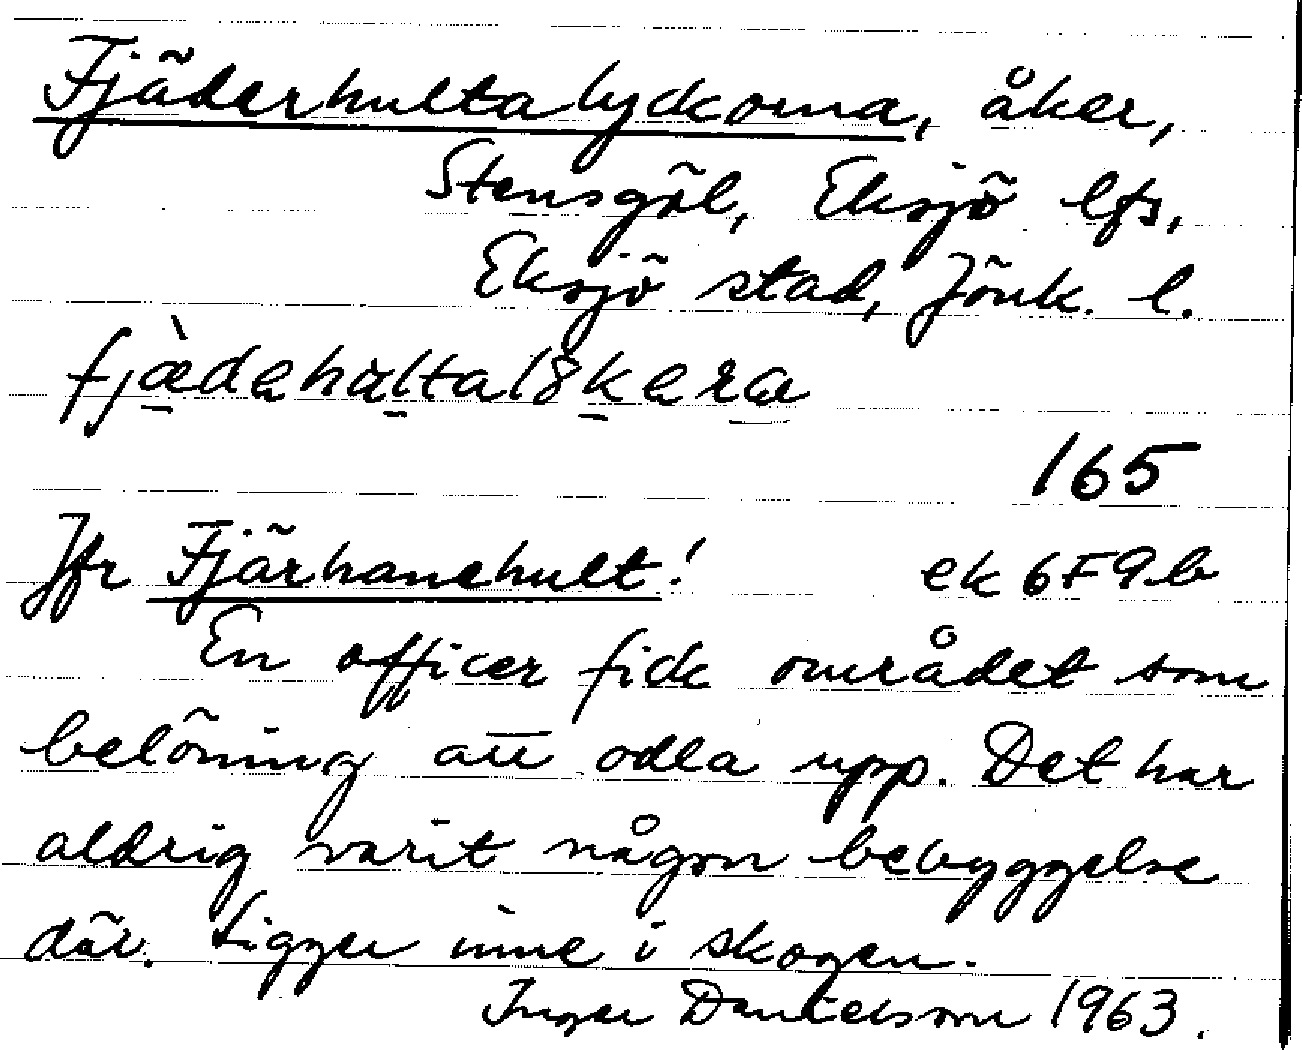 Fjäderhultalyckorna, åker,
Stensgöl, Eksjö lfs,
Eksjö stad, Jönk. l.
fjæ̀dehultalökera
165
Jfr Fjärhanehult! ek 6F9b
En officer fick området som
belöning att odla upp. Det har
aldrig varit någon bebyggelse
där. Ligger inne i skogen.
Inger Danielsson 1963.